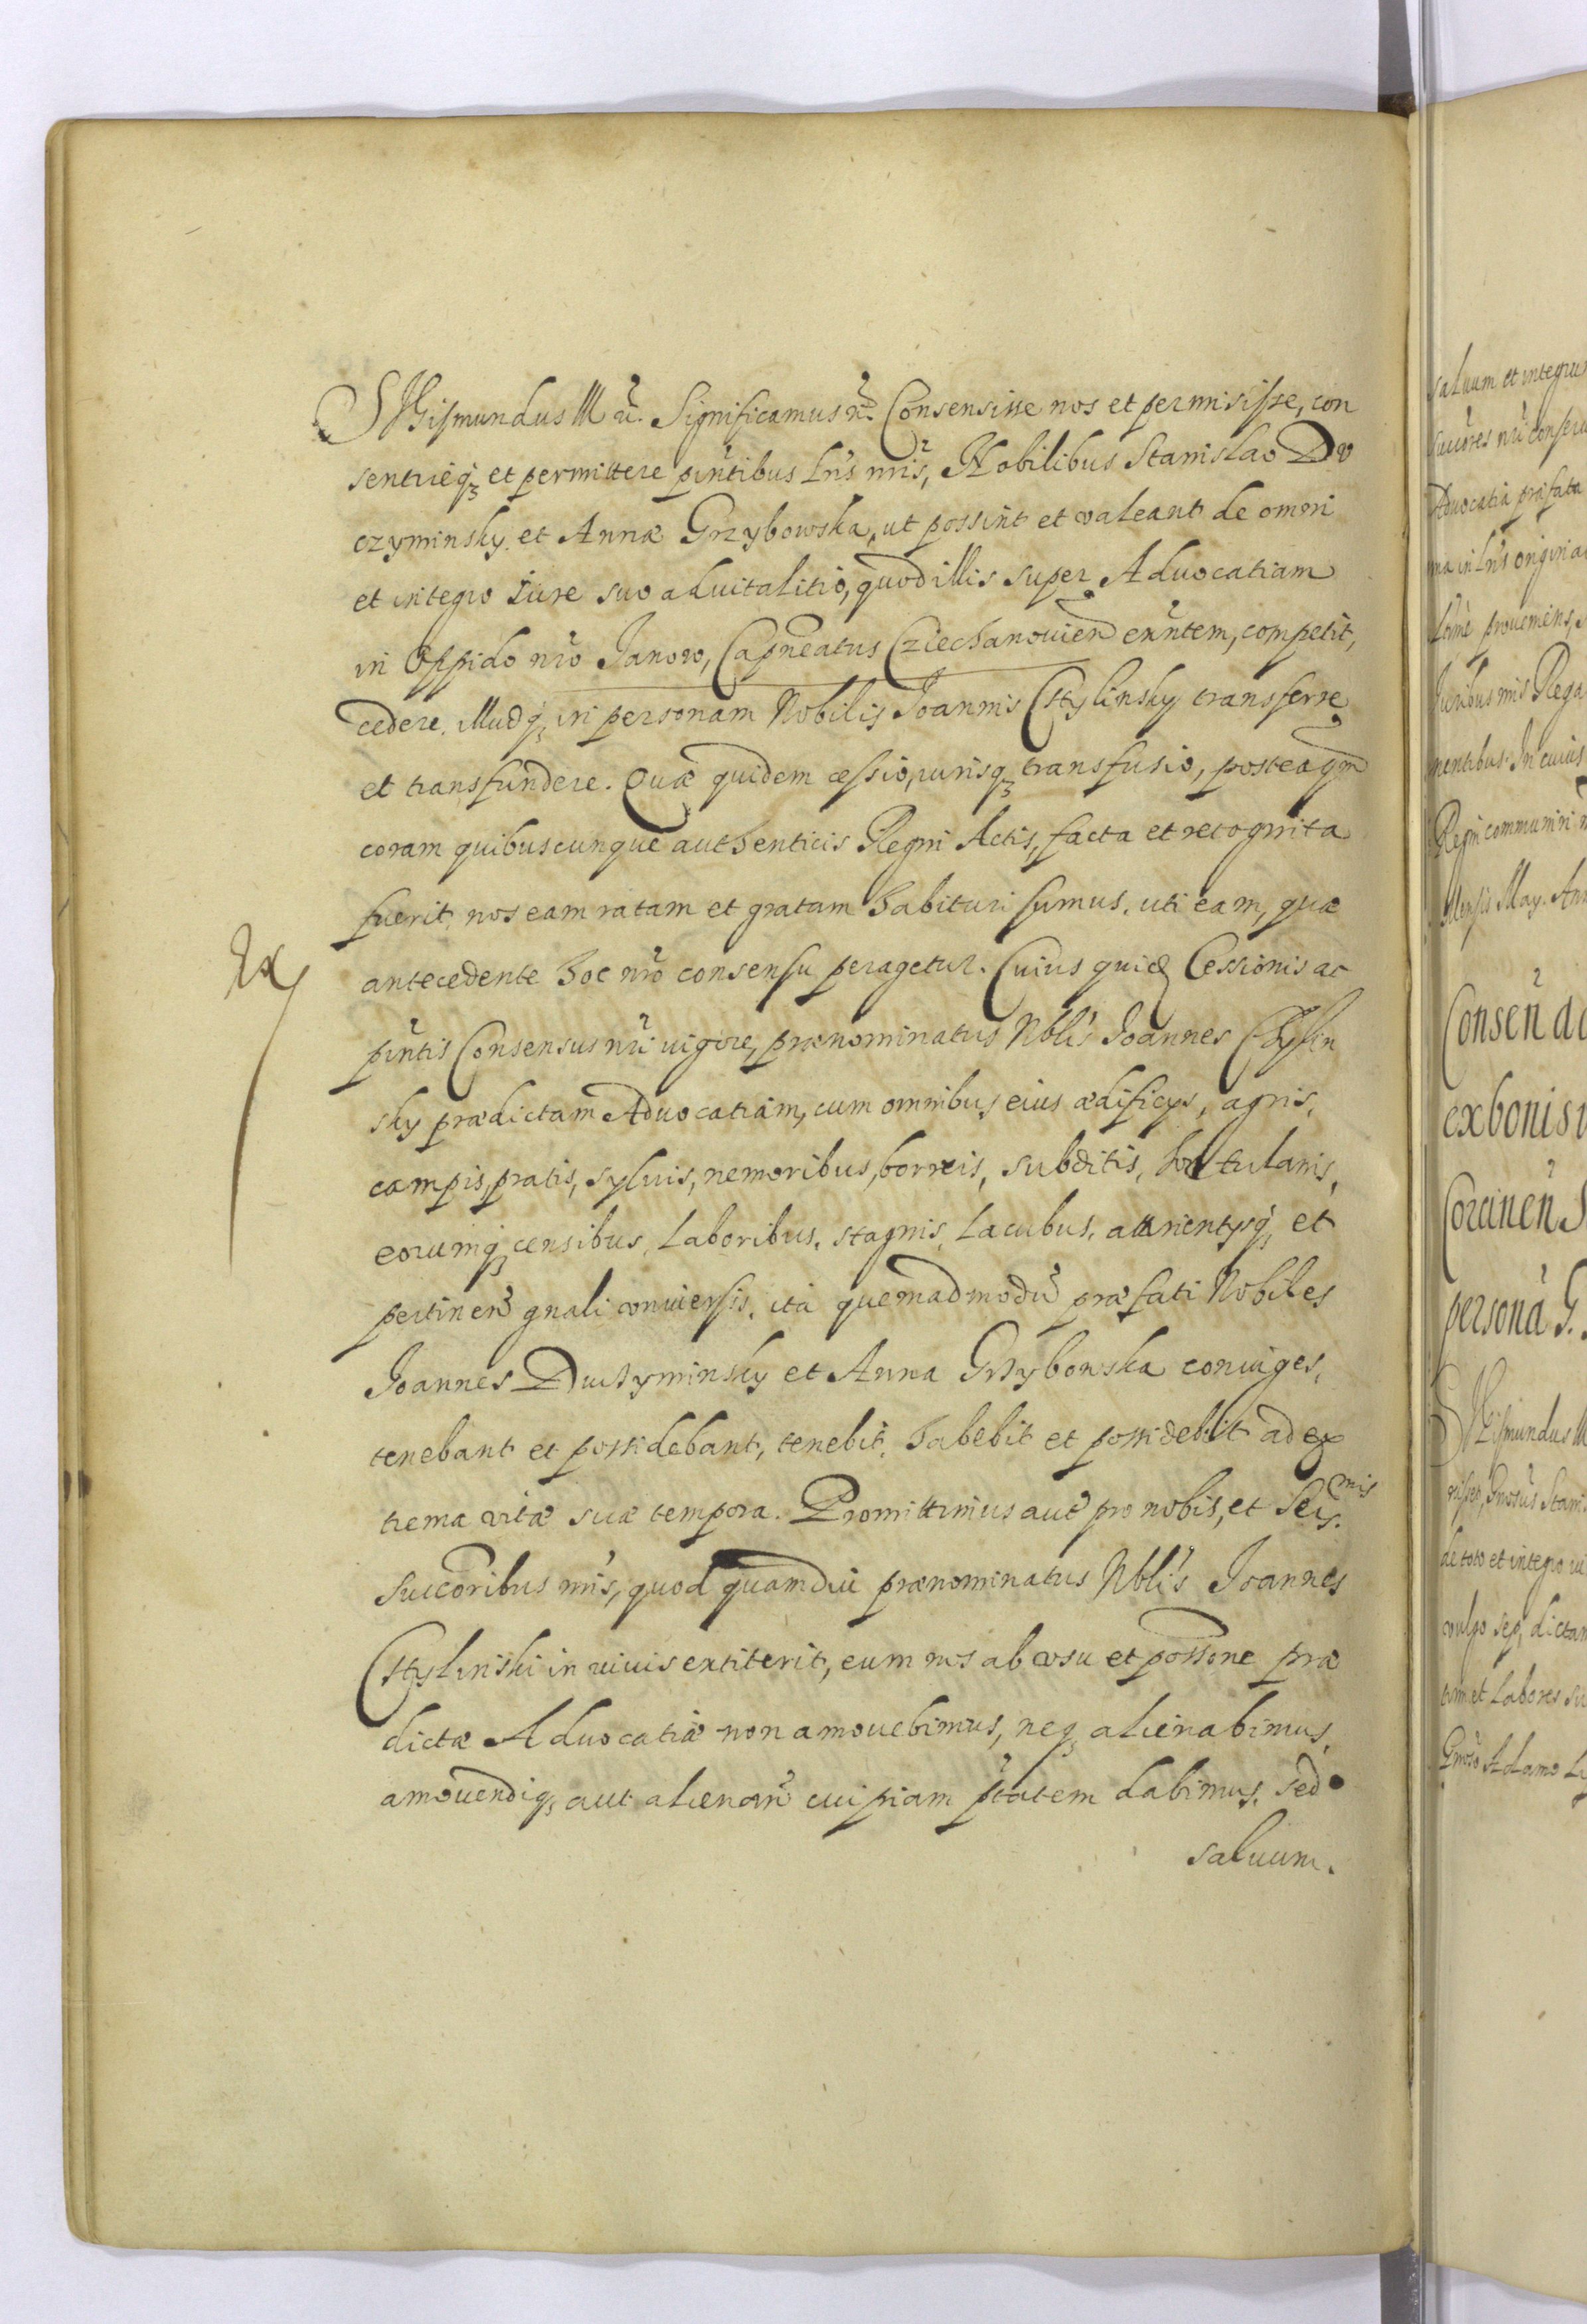 SIGismundus III ũ. Significamus ñ. Consensisse nos et permisisse, con
sentireq₃ et permittere pñtibus Lris nris, Nobilibus Stanislao Du
czyminsky et Annæ Grzybowska, ut possint et valeant de omni
et integro iure suo aduitalitio, quod illis super Aduocatiam
in Oppido nrõ Janow, Capneatus Cziechanouien̄ exñtem, competit,
cedere, illudq₃ in personam Nobilis Joannis Chylinsky transferre
et transfundere. Quæ quidem cessio, iurisq₃ transfusio, posteaqm̃
coram quibuscunque authenticis Regni Actis, facta et recognita
fuerit, nos eam ratam et gratam habituri sumus, uti eam, quæ
antecedente hoc nrõ consensu peragetur. Cuius quid Cessionis ac
pñtis Consensus nr̃i uigore, prænominatus Nblis Joannes Chylin
sky prædictam Aduocatiam, cum omnibus eius ædificys, agris,
campis, pratis, syluis, nemoribus, borreis, subditis, hortulanis,
eorumq₃ censibus, Laboribus, stagnis, Lacubus, attinentysq₃ et
pertinen̄ gnali conuiersis, ita quemadmodũ præfati Nobiles
Joannes Duczyminsky et Anna Grzybowska coniuges,
tenebant et possidebant, tenebit, habebit et possidebit ad ex
trema vitæ suæ tempora. Promittimus aut̃ pro nobis, et Sermis
Succoribus nris, quod quamdiu prænominatus Nblis Joannes
Chylinski in uiuis extiterit, eum nos ab vsu et possone præ
dictæ Aduocatiæ non amouebimus, neq₃ alienabimus,
amouendiq₃ aut alienan̄ cuipiam ptatem dabimus, sed
saluum.
Ex
saluum et integru
Aduocatia præfata
Juribus nris Rega
nentibus. In cuius
Regni communiri
Mensis May. An
Consen̄ ad
ex bonis
persona G.
SIGismundus III
de toto et integro
vulgo seq₃ dicta
et Labores
Adamo